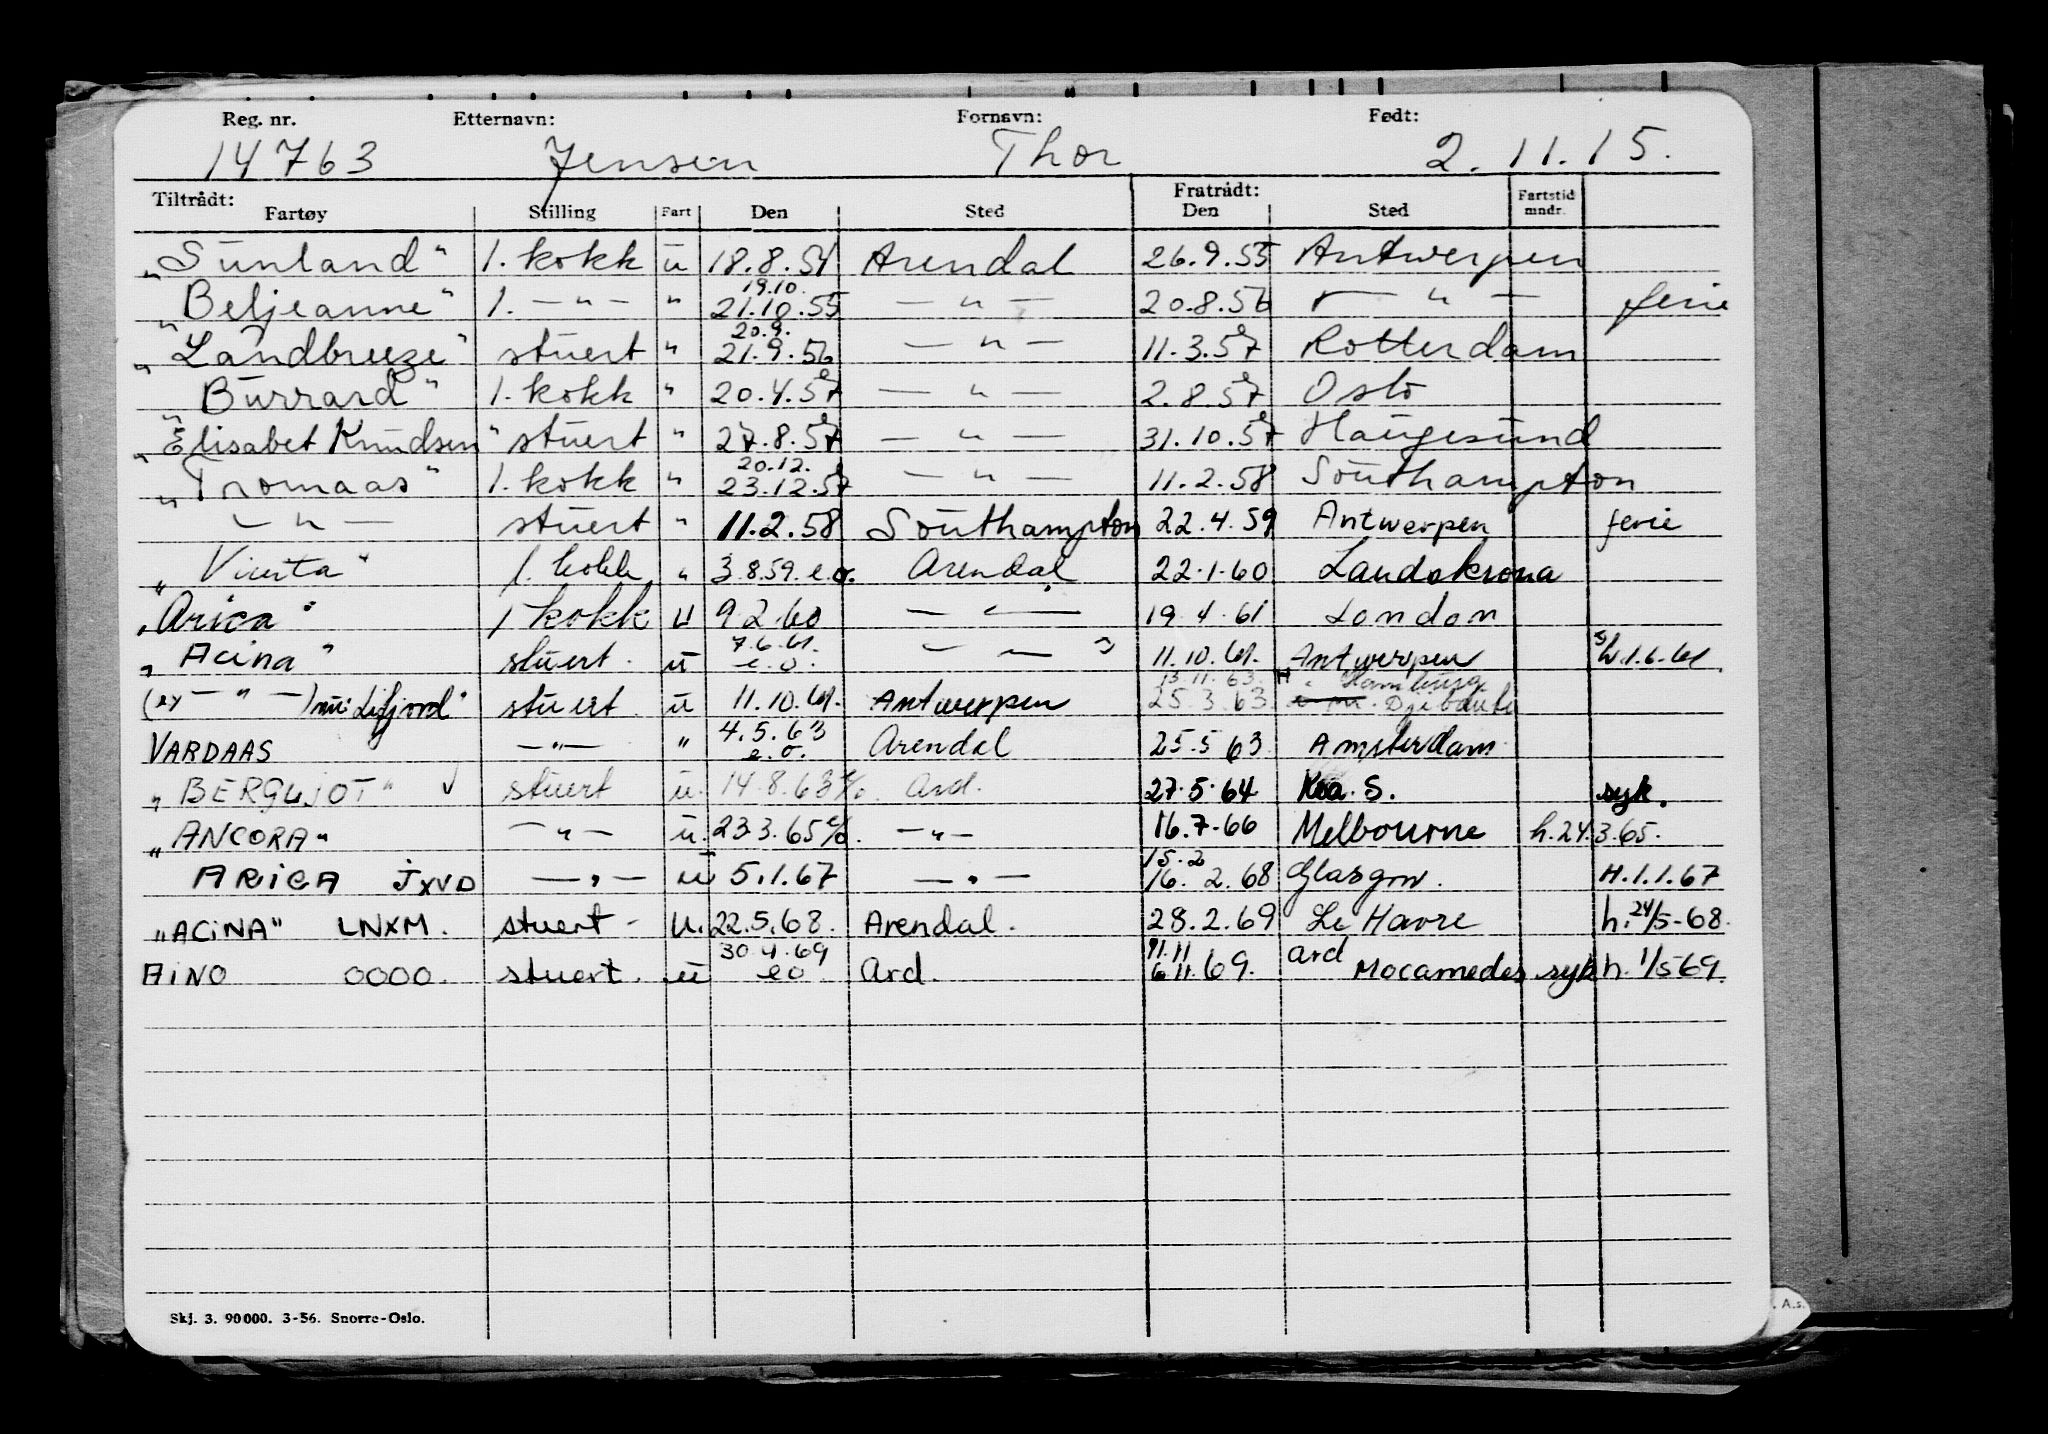 Reg. nr. Etternavn: Fornavn: Født:
14763 Jensen Thor 2.11.15.
Tiltrådt: Fratrådt:
Fartøy Stilling Fart Den Sted Den Sted Fartstid mndr.
"Sunland" 1. kokk u 18.8.54 Arendal 26.9.55 Antwerpen
19.10.
"Beljeanne" 1. — " — " 21.10.55 — " — 20.8.56 — " — ferie
20.9.
"Landbreeze" stuert " 21.9.56 — " — 11.3.57 Rotterdam
"Burrard" 1. kokk " 20.4.57 — " — 2.8.57 Oslo
"Elisabet Knudsen" stuert " 27.8.57 — " — 31.10.57 Haugesund
20.12.
"Tromaas" 1. kokk " 23.12.57 — " — 11.2.58 Southampton
— " — stuert " 11.2.58 Southampton 22.4.59 Antwerpen ferie
"Vivita" 1. kokk " 3.8.59. e.o. Arendal 22.1.60 Landskrona
"Arica" 1 kokk u 9 2.60 — " — 19.4.61 London
7.6.61.
"Acina" stuert. u e.o. — " — 11.10.61. Antwerpen h.1.6.61.
13.11.63. Hamburg
(ex — " —) nu: Lifjord" stuert u 11.10.61. Antwerpen 25.3.63 Djibouti
4.5.63
VARDAAS — " — " e.o. Arendal 25.5 63. Amsterdam
"BERGLJOT" √ stuert u. 14.8.63 e/o. Ard. 27.5.64 Kra. S. syk.
"ANCORA" — " — u. 23.3.65 e/o. — " — 16.7.66 Melbourne h.24.3.65.
15.2
ARICA JXVD — " — u 5.1.67 — " — 16. 2.68 Glasgow. H.1.1.67
"ACINA" LNXM. stuert - u. 22.5.68. Arendal. 28.2.69 Le Havre h. 24/5-68.
30.4.69 11.11 Ard
AINO OOOO. stuert. u eo Ard. 6.11.69. Mocamedes syk h. 1/5 69.
Skj. 3. 90000. 3-56. Snorre-Oslo.
. A.s.